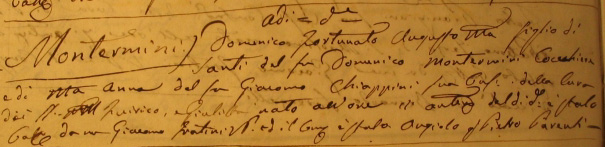 adi = d.o
Montermini) Domenico Fortunato Augusto M.a figlio di
Santi del fu Domenico Montermini Cocchiere
e di M.a Anna del fu Giacomo Chiappini sua Cas. della Cura
dei S.S. Quirico, e Giulitta nato all'ore di d.o è stato
Batt.o da me Giacomo Fratini P. ed il Comp. è stato Angiolo q. Pietro Parenti =